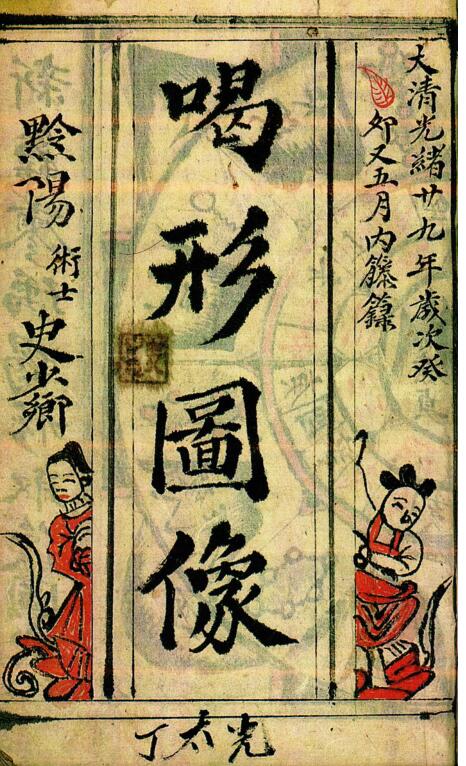 大清光緒廿九年歲次癸
卯又五月內籐籙
喝形圖像
黔陽術士史少卿
光太丁